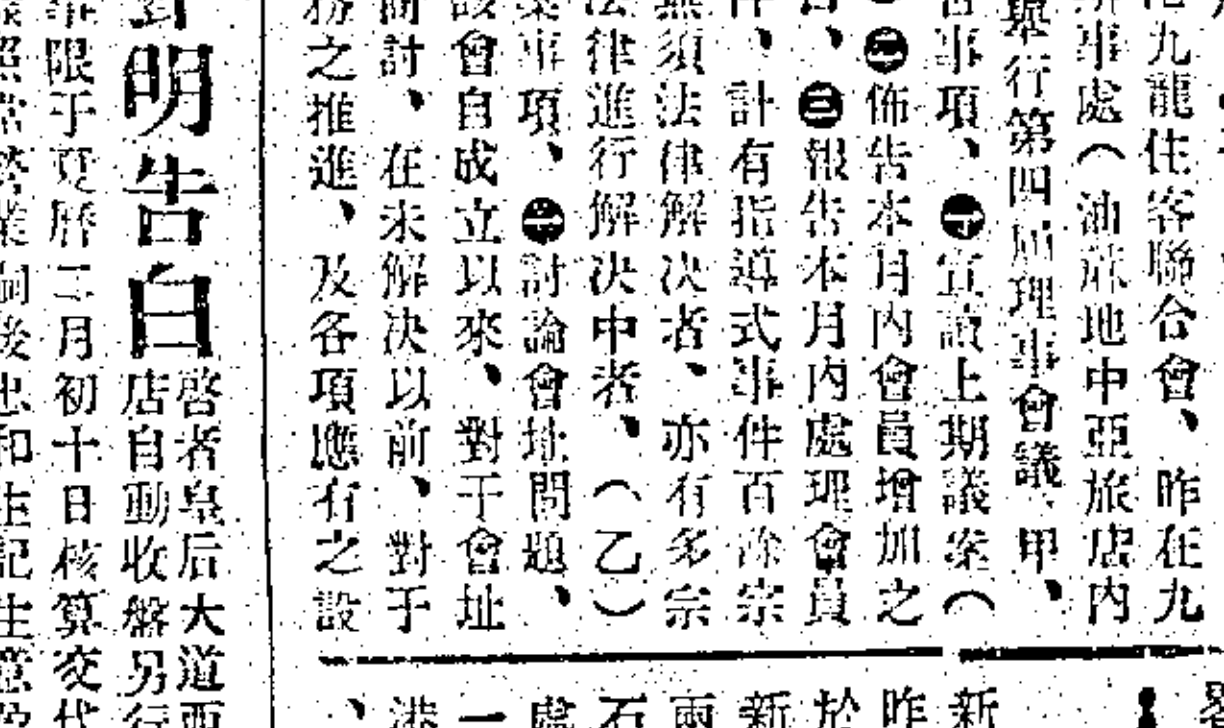 港九龍住客聯合會、昨在九
辦事處（油蔴地中亞旅店內
舉行第四屆理事會議、甲、
告事項、㊀宣讀上期議案（
㊁佈告本月內會員增加之
告、㊂報告本月內處理會員
件、計有指導式事件百餘宗
無須法律解決者、亦有多宗
法律進行解決中者、（乙）
案事項、㊀討論會址問題、
該會自成立以來、對于會址
商討、在未解決以前、對于
務之推進、及各項應有之設
新
昨
於
新
兩
石
處
一
港
、
明告白
啓者皇后大道西
店自動收盤另行
限于夏曆二月初十日核算交代
照常營業嗣後忠和生記生意及